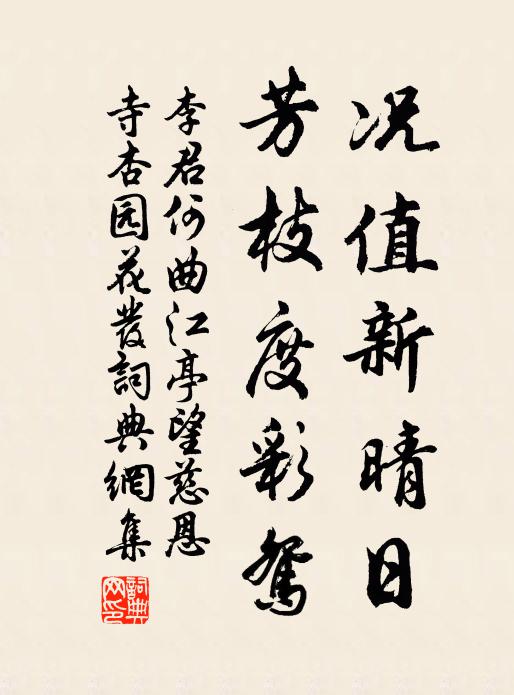 况值新晴日
芳枝度彩鸳
李君何曲江亭望慈恩
寺杏园花發詞典網集